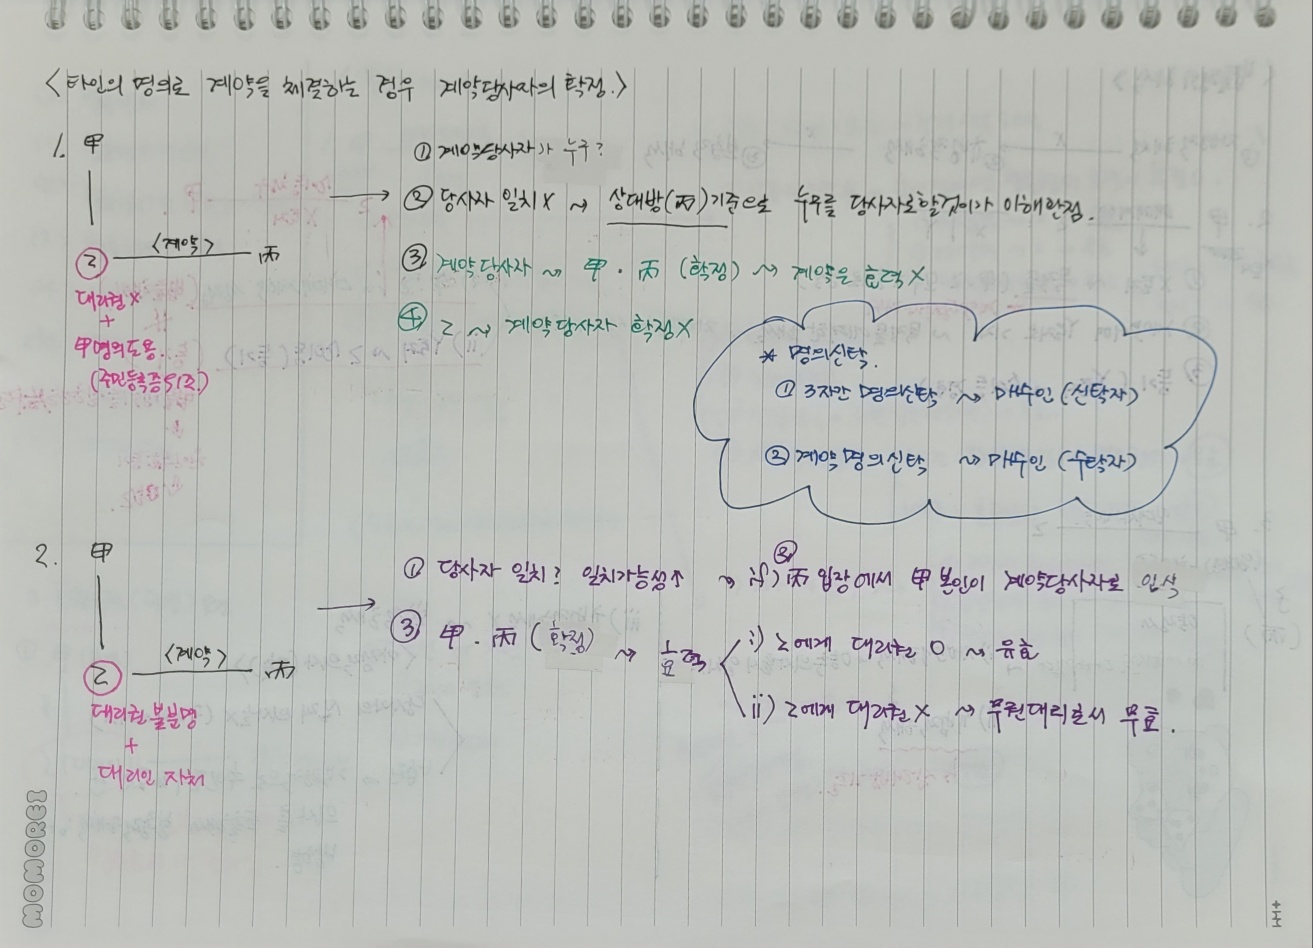 <타인의 명의로 계약을 체결하는 경우 계약당사자의 확정.>
1. 甲
① 계약당사자가 누구?
② 당사자 일치 X ⇝ 상대방(丙)기준으로 누구를 당사자로할것이가 이해관점.
<계약>
乙 丙
③ 계약당사자 ⇝ 甲 · 丙 (확정) ⇝ 계약은 효력 X
대리권 X
+
甲명의도용.
(주민등록증위조.)
④ 乙 ⇝ 계약당사자 확정 X
* 명의신탁.
① 3자간 명의신탁 ⇝ 매수인 (신탁자)
② 계약 명의신탁 ⇝ 매수인 (수탁자)
2. 甲
① 당사자 일치? 일치가능성↑ ⇝ ② if) 丙 입장에서 甲 본인이 계약당사자로 인식
③ 甲 · 丙 (확정) ⇝ 효력
i) 乙에게 대리권 O ⇝ 유효
ii) 乙에게 대리권 X ⇝ 무권대리로서 무효.
<계약>
乙 丙
대리권 불분명
+
대리인 자처
MOMOREI